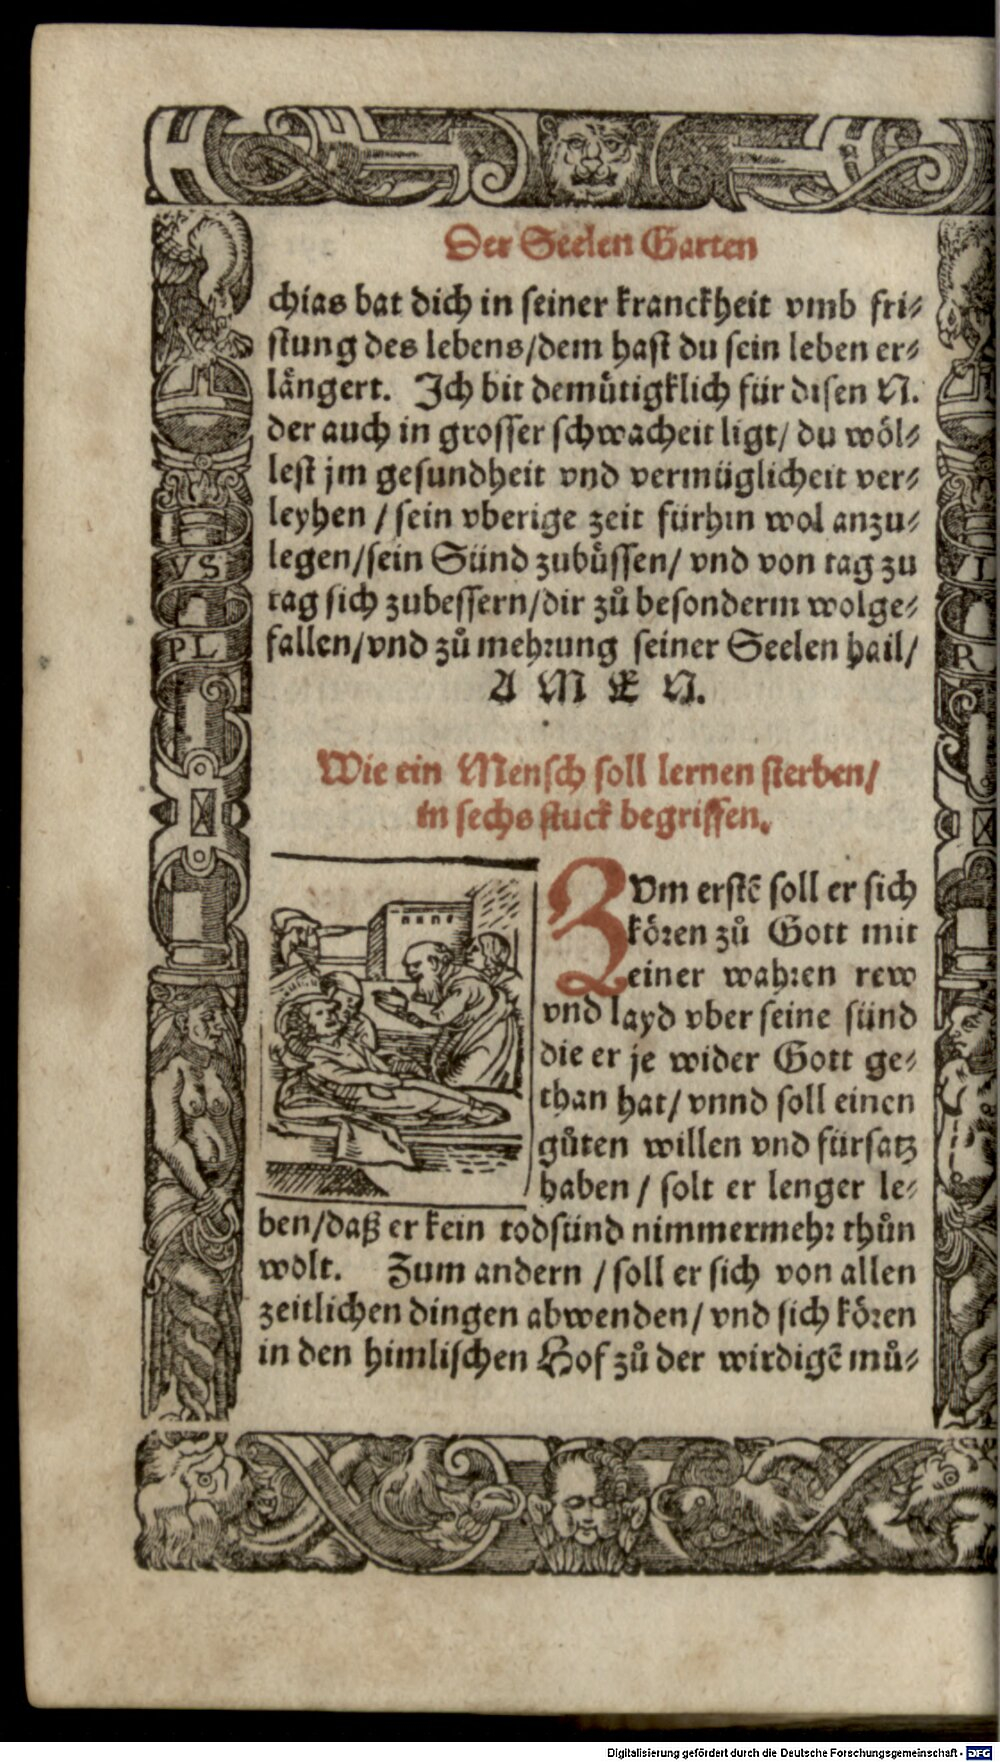 Der Seelen Garten
chias bat dich in seiner kranckheit vmb fri⸗
stung des lebens/dem hast du sein leben er⸗
lăngert. Ich bit demuͤtigklich für disen N.
der auch in grosser schwacheit ligt/ du woͤl⸗
lest jm gesundheit vnd vermüglicheit ver⸗
leyhen / sein vberige zeit fürhin wol anzu⸗
legen/sein Sünd zubuͤssen/ vnd von tag zu
tag sich zubessern/dir zů besonderm wolge⸗
fallen/vnd zů mehrung seiner Seelen hail/
A M E N.
Wie ein Mensch soll lernen sterben/
in sechs stuck begriffen.
ZVm erstē soll er sich
kören zů Gott mit
einer wahren rew
vnd layd vber seine sünd
die er je wider Gott ge⸗
than hat/ vnnd soll einen
gůten willen vnd fürsatz
haben / solt er lenger le⸗
ben/daß er kein todsünd nimmermehr thůn
wolt. Zum andern / soll er sich von allen
zeitlichen dingen abwenden/ vnd sich kören
in den himlischen Hof zů der wirdigē můͦ⸗
VS
PL
VL
R
Digitalisierung gefördert durch die Deutsche Forschungsgemeinschaft - DFG